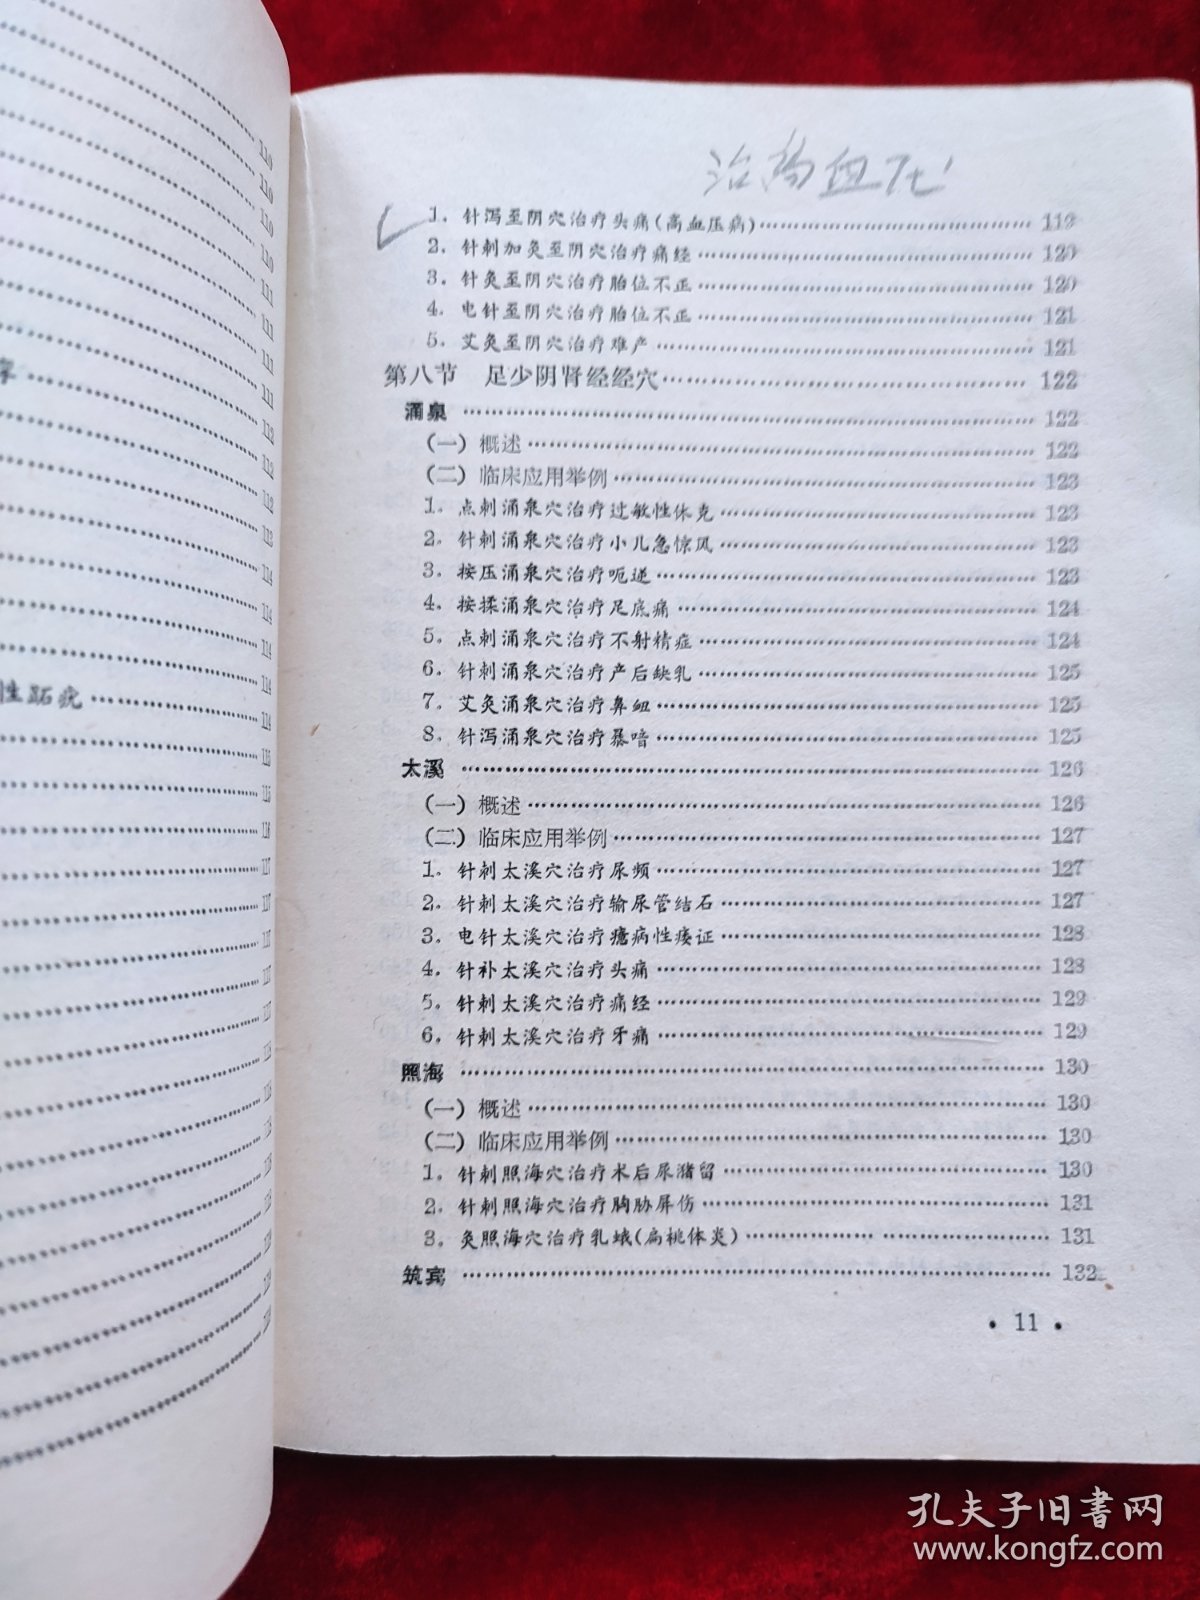 110
110
110
110
111
111
111
111
112
112
112
113
114
114
114
114
性跖疣 114
115
115
116
117
117
117
117
117
治高血压
1. 针泻至阴穴治疗头痛(高血压病) 119
2. 针刺加灸至阴穴治疗痛经 120
3. 针灸至阴穴治疗胎位不正 120
4. 电针至阴穴治疗胎位不正 121
5. 艾灸至阴穴治疗难产 121
第八节 足少阴肾经经穴 122
涌泉 122
(一) 概述 122
(二) 临床应用举例 123
1. 点刺涌泉穴治疗过敏性休克 123
2. 针刺涌泉穴治疗小儿急惊风 123
3. 按压涌泉穴治疗呃逆 123
4. 按揉涌泉穴治疗足底痛 124
5. 点刺涌泉穴治疗不射精症 124
6. 针刺涌泉穴治疗产后缺乳 125
7. 艾灸涌泉穴治疗鼻衄 125
8. 针泻涌泉穴治疗暴喑 125
太溪 126
(一) 概述 126
(二) 临床应用举例 127
1. 针刺太溪穴治疗尿频 127
2. 针刺太溪穴治疗输尿管结石 127
3. 电针太溪穴治疗癔病性痿证 128
4. 针补太溪穴治疗头痛 128
5. 针刺太溪穴治疗痛经 129
6. 针刺太溪穴治疗牙痛 129
照海 130
(一) 概述 130
(二) 临床应用举例 130
1. 针刺照海穴治疗术后尿潴留 130
2. 针刺照海穴治疗胸胁屏伤 131
3. 灸照海穴治疗乳蛾(扁桃体炎) 131
筑宾 132
• 11 •
孔夫子旧书网
www.kongfz.com